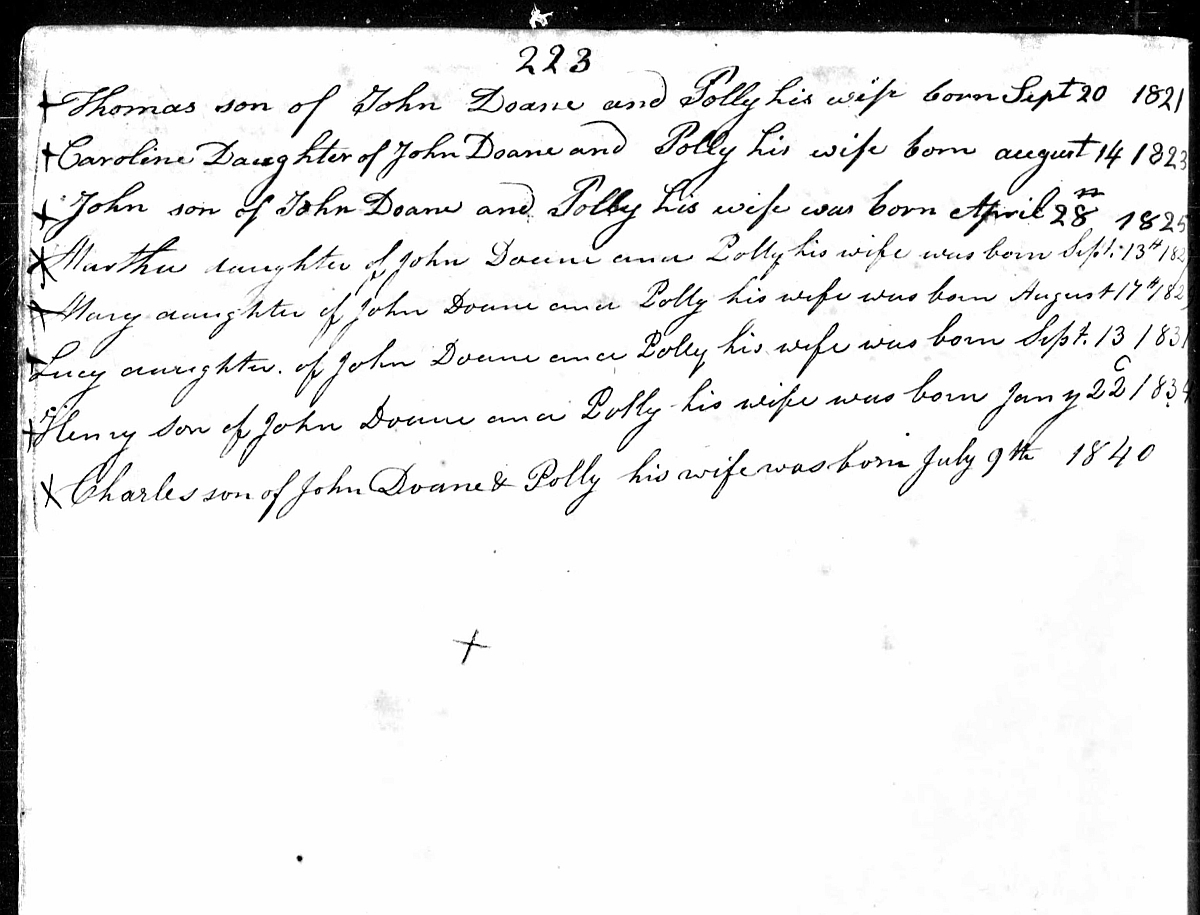 223
Thomas son of John Doane and Polly his wife born Sept 20 1821
Caroline Daughter of John Doane and Polly his wife born august 14 1823
John son of John Doane and Polly his wife was born April 28 1825
Martha daughter of John Doane and Polly his wife was born Sept. 13th
Mary daughter of John Doane and Polly his wife was born August 17th
Lucy daughter. of John Doane and Polly his wife was born Sept. 13 1831
Henry son of John Doane and Polly his wife was born Jany 22 1834
Charles son of John Doane & Polly his wife was born July 9th 1840